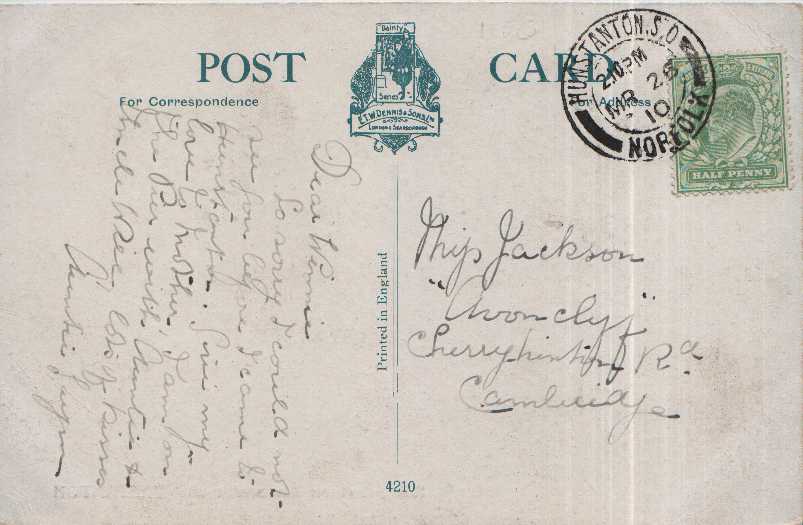 POST CARD
For Correspondence
For Address
Dainty
Series
E.T.W. DENNIS & SONS LTD
LONDON & SCARBOROUGH
HUNSTANTON. S.O
2 10 PM
MR 26
10
NORFOLK
HALF PENNY
Dear Winnie
So sorry I could not
see you before I came to
Hunstanton. Give my
love to Mother, I am on
the Pier with Auntie &
Uncle Lots of kisses
Auntie
Miss Jackson
"Avonclyf"
Cherryhinton Rd
Cambridge
Printed in England
4210